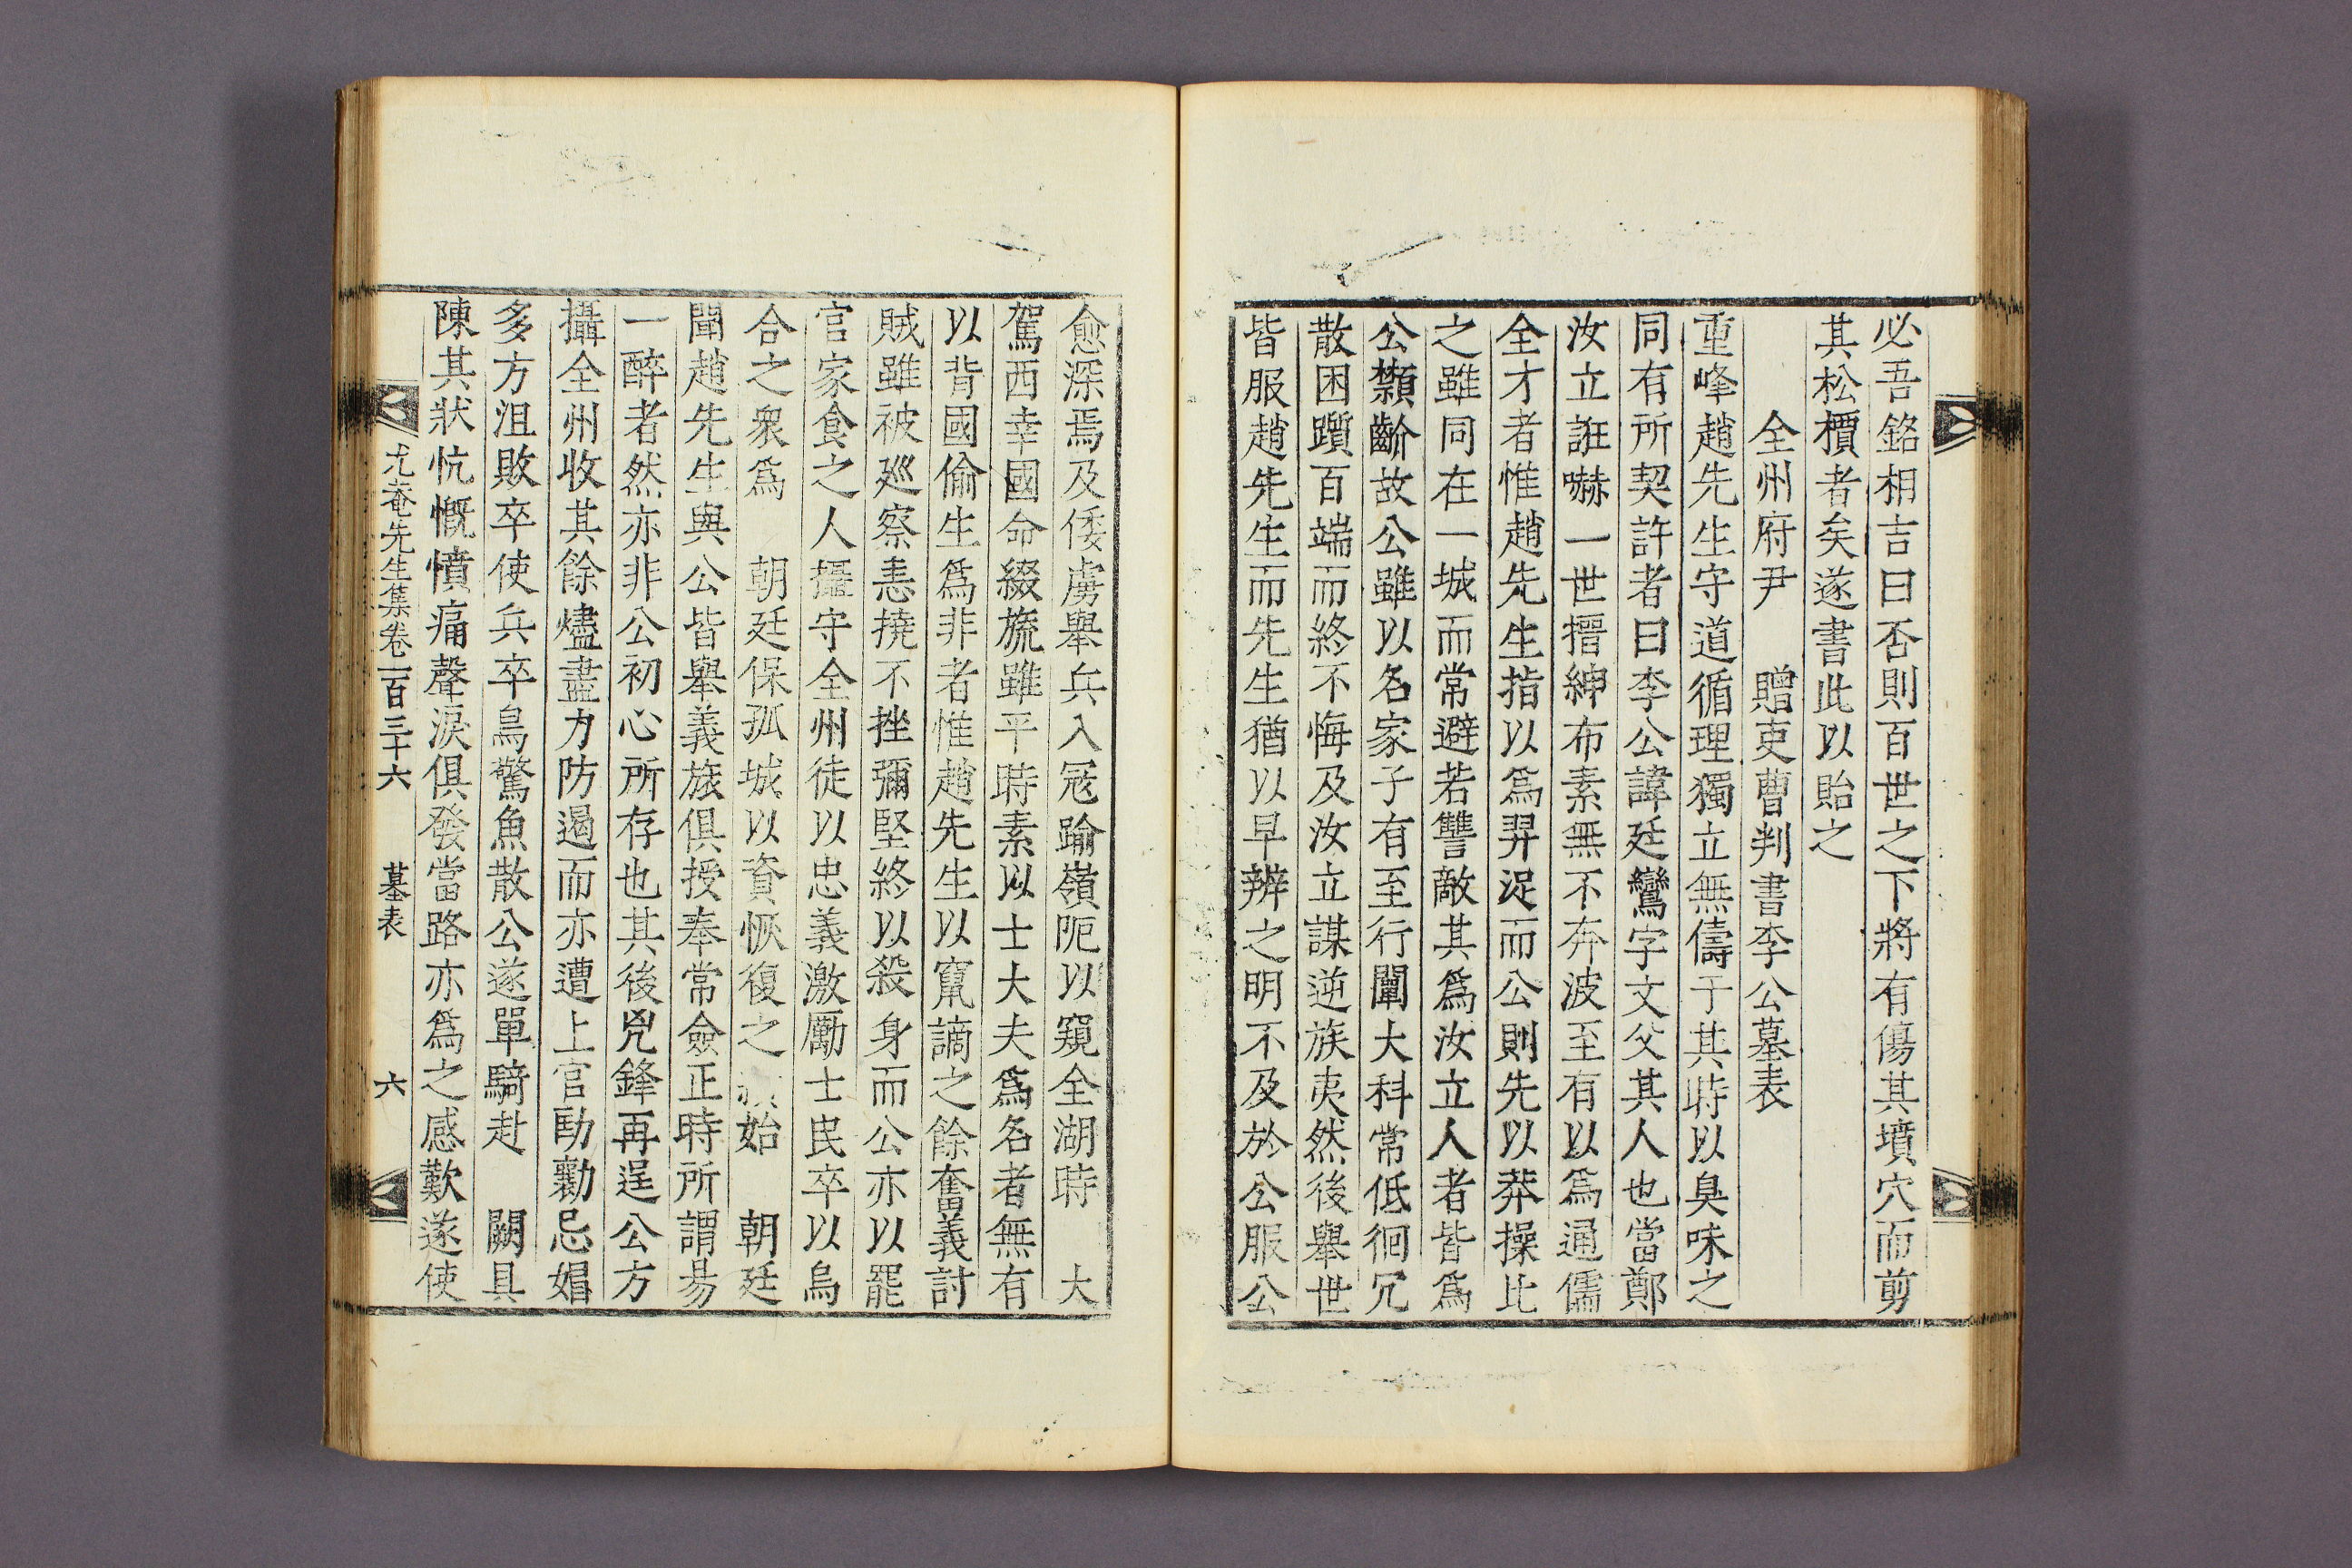 必吾銘相吉曰否則百世之下將有傷其墳穴而剪
其松檟者矣遂書此以貽之
全州府尹　贈吏曹判書李公墓表
重峰趙先生守道循理獨立無儔于其時以臭味之
同有所契許者曰李公諱廷鸞字文父其人也當鄭
汝立誑嚇一世搢紳布素無不奔波至有以爲通儒
全才者惟趙先生指以爲羿浞而公則先以莽操比
之雖同在一城而常避若讐敵其爲汝立人者皆爲
公齡故公雖以名家子有至行闡大科常低徊冗
散困躓百端而終不悔及汝立謀逆族夷然後擧世
皆服趙先生而先生猶以早辨之明不及於公服公
愈深焉及倭虜擧兵入冦踰嶺阨以窺全湖時　大
駕西幸國命綴旒雖平時素以士大夫爲名者無有
以背國偷生爲非者惟趙先生以竄謫之餘奮義討
賊雖被廵察恚撓不挫彌堅終以殺身而公亦以罷
官家食之人攝守全州徒以忠義激勵士民卒以烏
合之衆爲　朝廷保孤城以資恢復之始　朝廷
聞趙先生與公皆擧義旅俱授奉常僉正時所謂易
一醉者然亦非公初心所存也其後兇鋒再逞公方
攝全州收其餘燼盡力防遏而亦遭上官勛勷忌娼
多方沮敗卒使兵卒鳥驚魚散公遂單騎赴　闕具
陳其狀忼慨憤痛聲淚俱發當路亦爲之感歎遂使
尤菴先生集卷一百三十六　墓表　六